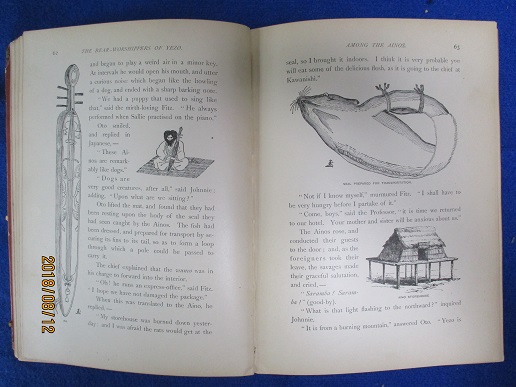 62 THE BEAR-WORSHIPPERS OF YEZO.
and began to play a weird air in a minor key.
At intervals he would open his mouth, and utter
a curious noise which began like the howling
of a dog, and ended with a sharp barking note.
"We had a puppy that used to sing like
that," said the mirth-loving Fitz. "He always
performed when Sallie practised on the piano."
Oto smiled,
and replied in
Japanese,—
"Those Ai-
nos are remark-
ably like dogs."
"Dogs are
very good creatures, after all," said Johnnie;
adding, "Upon what are we sitting?"
Oto lifted the mat, and found that they had
been resting upon the body of the seal they
had seen caught by the Ainos. The fish had
been dressed, and prepared for transport by se-
curing its fins to its tail, so as to form a loop
through which a pole could be passed to
carry it.
The chief explained that the was in
his charge to forward into the interior.
"Oh! he runs an express-office," said Fitz.
"I hope we have not damaged the package."
When this was translated to the Ainos, he
replied,—
"My storehouse was burned down yester-
day; and I was afraid the rats would get at the
AMONG THE AINOS. 63
seal, so I brought it indoors. I think it is very probable you
will eat some of the delicious flesh, as it is going to the chief at
Kawanishi."
SEAL PREPARED FOR TRANSPORTATION.
"Not if I know myself," murmured Fitz. "I shall have to
be very hungry before I partake of it."
"Come, boys," said the Professor, "it is time we returned
to our hotel. Your mother and sister will be anxious about us."
The Ainos rose, and
conducted their guests
to the door; and, as the
foreigners took their
leave, the savages made
their graceful salutation,
and cried,—
"Saramba! Saram-
ba!" (good-by).
AINO STOREHOUSE.
"What is that light flashing to the northward?" inquired
Johnnie.
"It is from a burning mountain," answered Oto. "Yezo is
2018/08/12